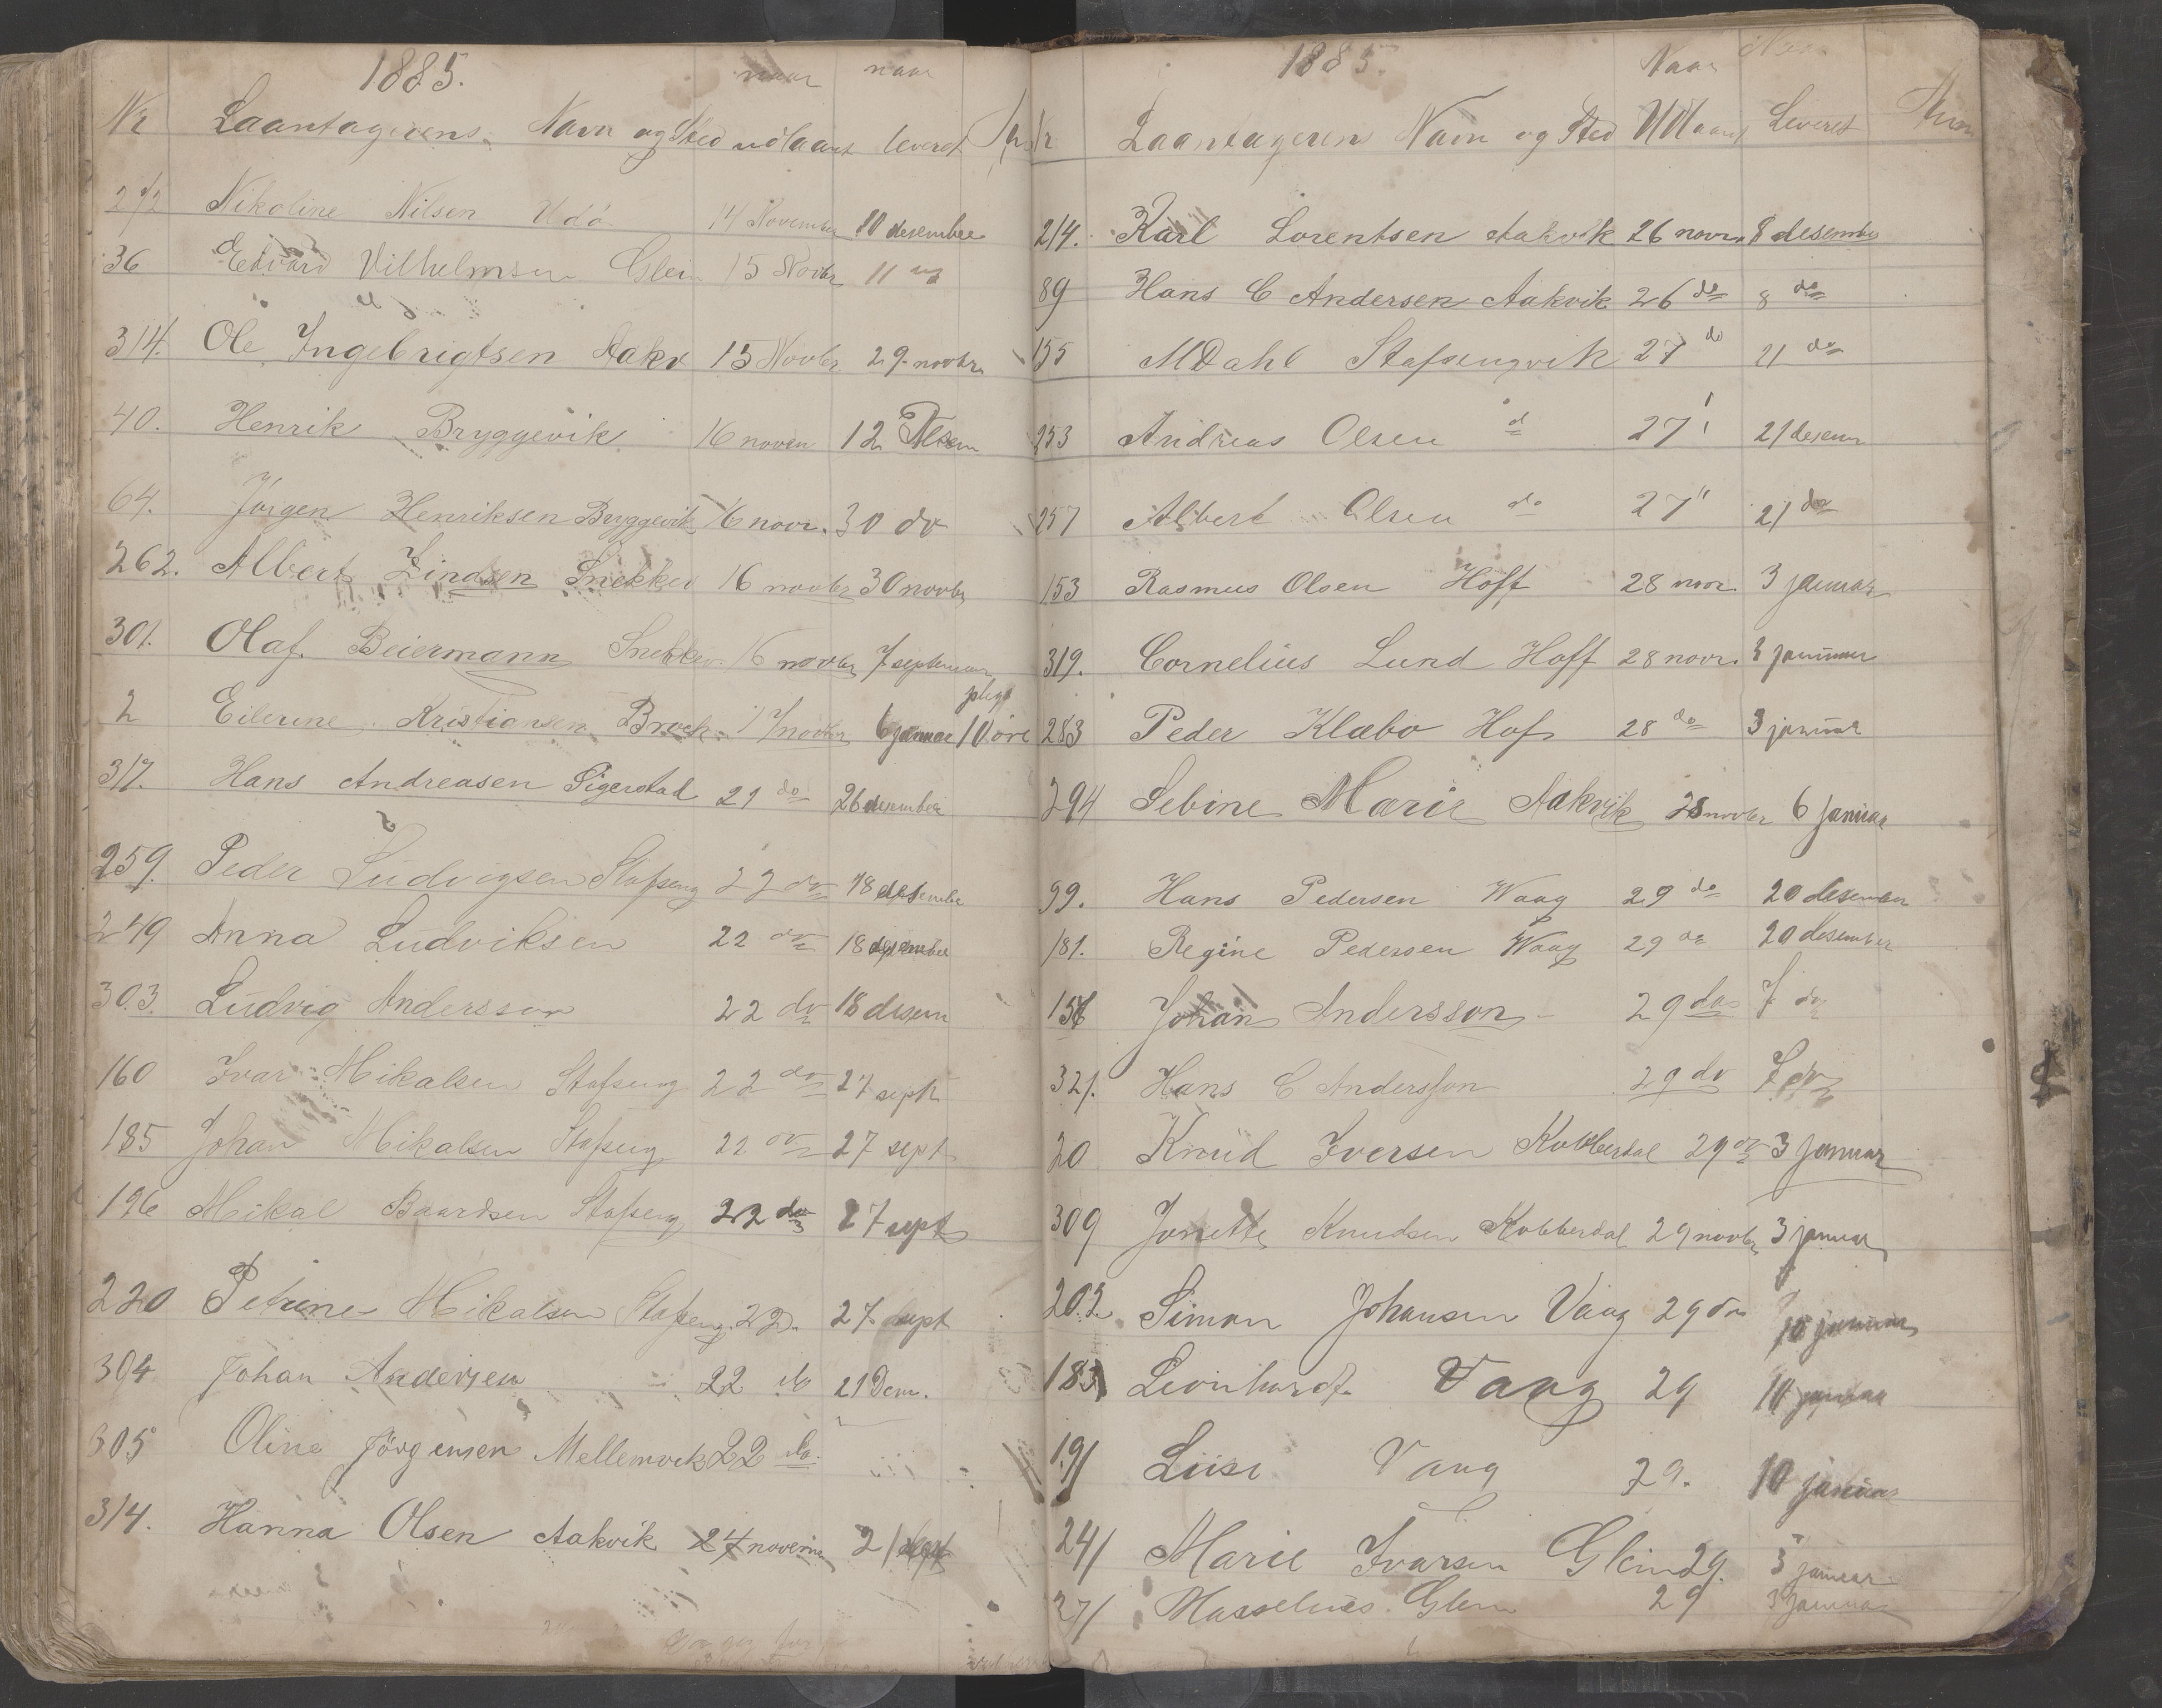 1885.
naar naar
Nr Laantagerens Navn og Sted udlaant leveret
272 Nikoline Nilsen Udö 14 November 10 desember
36 Edvard Vilhelmsen Glein 15 Novbr 11
314. Ole Ingebrigtsen Aakv 15 Novbr. 29. novbr
40. Henrik Bryggevik 16 noven 12
64. Jörgen Henriksen Bryggevik 16 novr. 30 do
262. Albert Zindsen Snekkev 16 novbr 30 novbr
301. Olaf. Beiermann Snekkev 16 novbr 7 septemar
2 Eilerine Kristiansen Broch 17 novbr 6 januar 10 öre
317. Hans Andreasen Sigerstad 21 do 26 desember
259. Peder Ludvigsen Stafseng 22 do 18 desember
249 Anna Ludviksen 22 do 18 desember
303. Ludvig Andersson 22 do 18 desem
160 Ivar Mikalsen Stafseng 22 do 27 sept
185 Johan Mikalsen Stafseng 22 do 27 sept
196 Mikal Baardsen Stafseng 22 do 27 sept
220 Petrine Mikalsen Stafseng 22 27 sept
304 Johan Andersen 22 do 21 Dem.
305 Oline Jörgensen Mellemvik 22 do.
314. Hanna Olsen Aakvik 24 novem 21 sept
1885.
Naar Naar
Laantageren Navn og Sted Udlaant Leveret
214. Karl Lorentsen Aakvik 26 novr 8 desembr
89 Hans C Andersen Aakvik 26 do 8 do
155 MDahl Stafsengvik 27 do 21 do
253 Andreas Olsen d 27 21 desem
257 Albert Olsen do 27 " 21 do
153 Rasmus Olsen Hoff 28 novr 3 januar
319. Cornelius Lund Hoff 28 novr. 3 januuar
283 Peder Klæbo Hof 28 do 3 januar
294 Sebine Marie Aakvik 28 novbr 6 januar
99. Hans Pedersen Waag 29 do 20 desember
181. Regine Pedersen Waag 29 do 20 desember
156 Johan Andersson 29 do 7 do
321. Hans C Andersson 29 do 7 do
20 Knud Iversen Kobberdal 29 do 3 januar
309 Jonette Knudsen Kobberdal 29 novbr 3 januar
202. Simon Johansen Vaag 29 do 10 januar
183 Leonhardt Vaag 29 10 januar
191 Luise Vaag 29. 10 januar
241 Marie Ivarsen Glein 29. 3 januar
271 Masselius Glein 29 3 januar